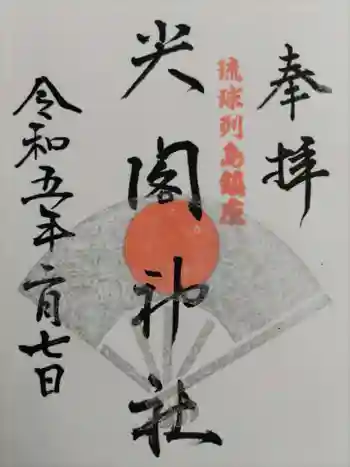 奉拝
琉球列島鎮座
尖閣神社
令和五年二月七日